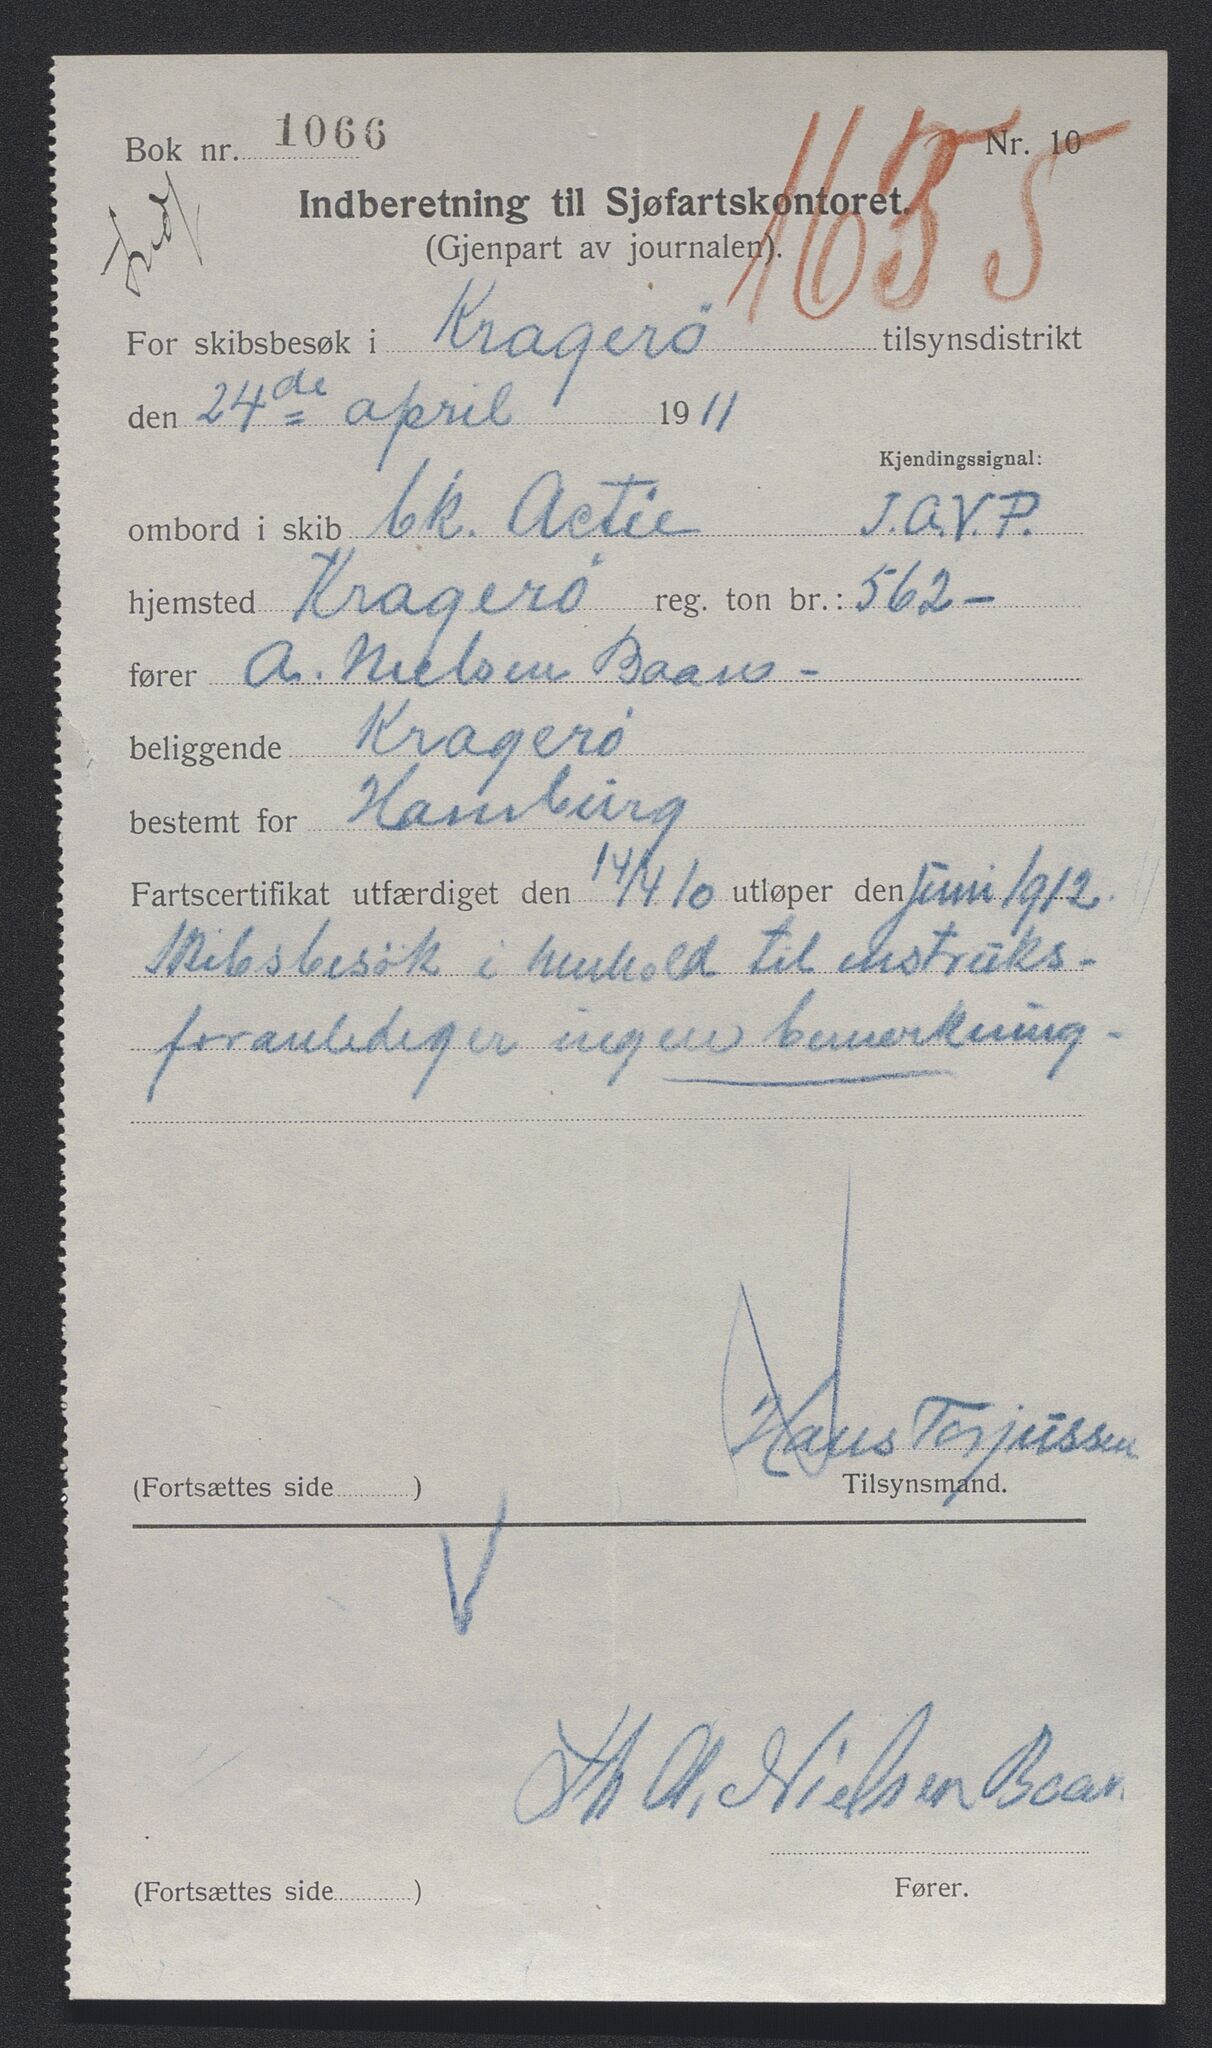 Bok nr. 1066 Nr. 10
1635
Indberetning til Sjøfartskontoret.
(Gjenpart av journalen).
For skibsbesøk i Kragerö tilsynsdistrikt
den 24de april 1911
Kjendingssignal:
ombord i skib bk. Actie J.A.V.P.
hjemsted Kragerö reg. ton br.: 562-
fører A. Nielsen Baans -
beliggende Kragerö
bestemt for Hamburg
Fartscertifikat utfærdiget den 14/4 10 utløper den juni 1912.
Skibsbesök i henhold til instruks-
foranlediger ingen bemerkning -
Hans Torjussen
(Fortsættes side ) Tilsynsmand.
Th A. Nielsen Baan
(Fortsættes side ) Fører.